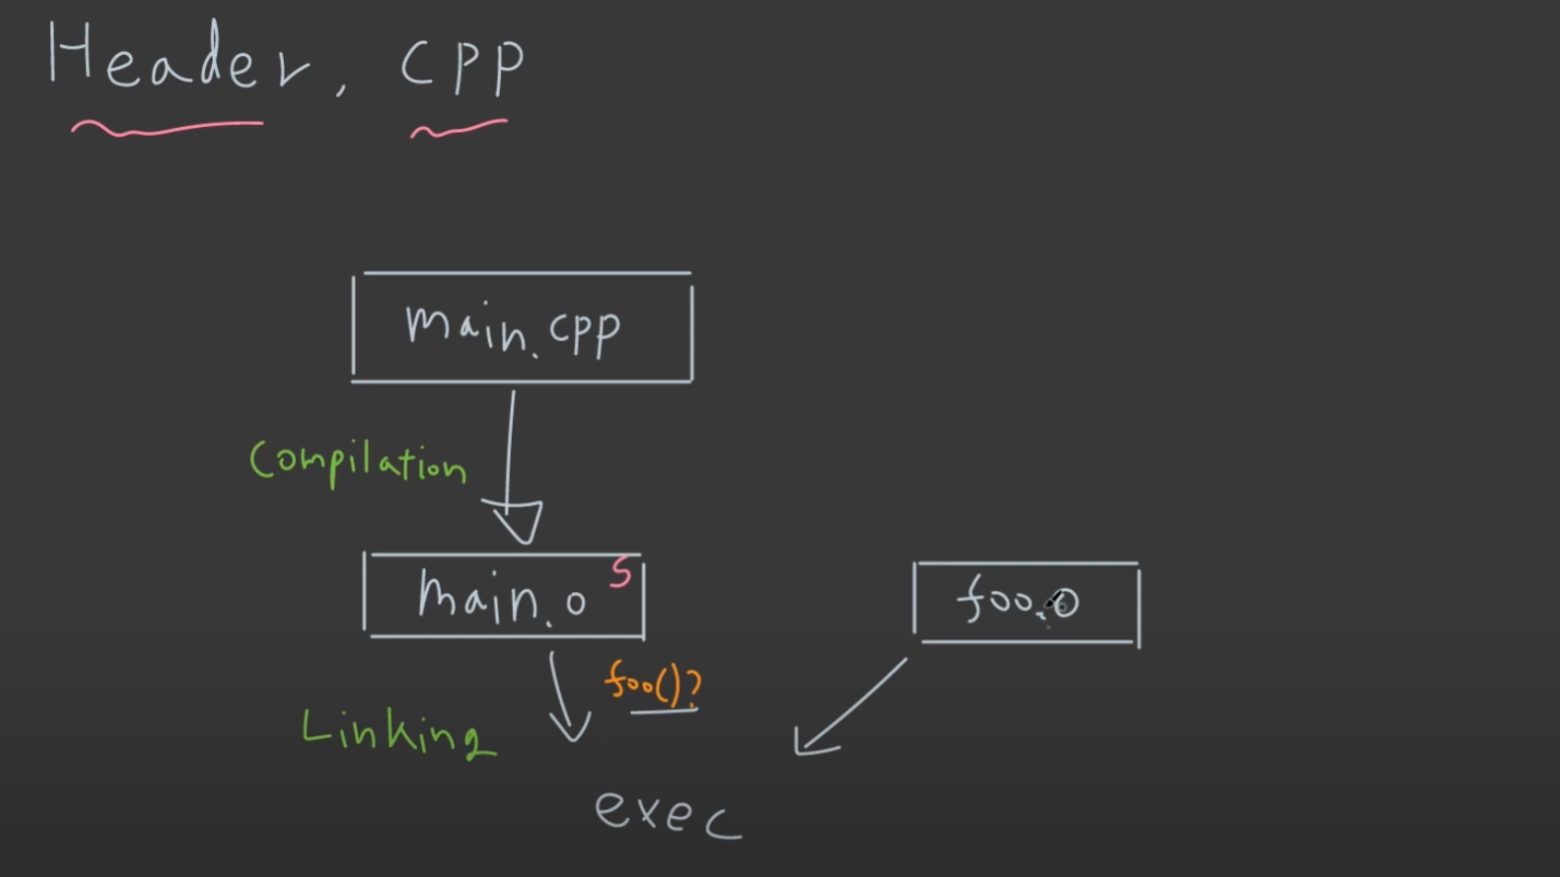 Header, cpp
main.cpp
Compilation
main.o s
foo.o
foo()?
Linking
exec